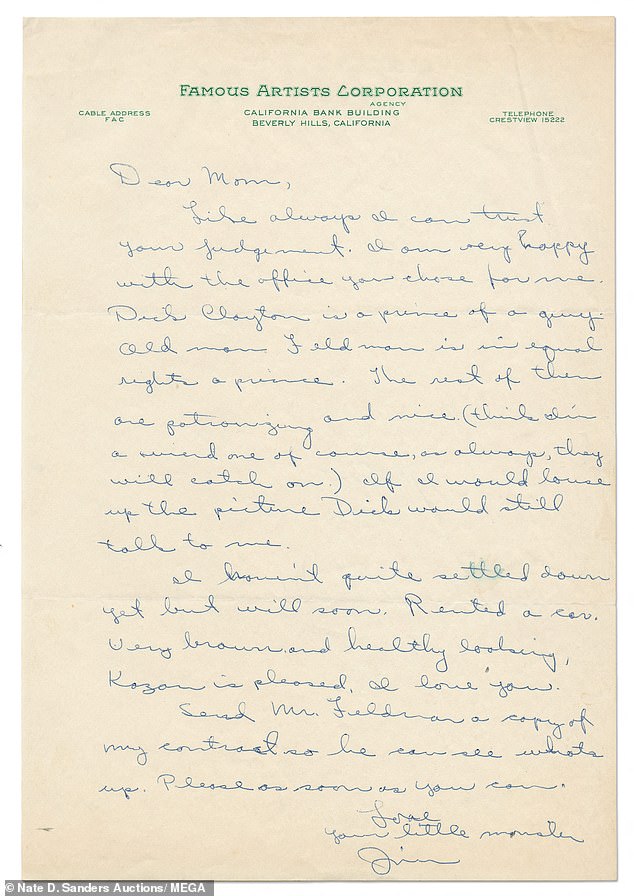 FAMOUS ARTISTS CORPORATION
AGENCY
CABLE ADDRESS
FAC
CALIFORNIA BANK BUILDING
BEVERLY HILLS, CALIFORNIA
TELEPHONE
CRESTVIEW 15222
Dear Mom,
Like always I can trust
your judgement. I am very happy
with the office you chose for me.
Dick Clayton is a prince of a guy.
Old man Feldman is in equal
rights a prince. The rest of them
are patronizing and nice. (think I'm
a weird one of course, as always, they
will catch on.) If I would louse
up the picture Dick would still
talk to me.
I haven't quite settled down
yet but will soon. Rented a car.
Very brown and healthy looking,
Kazan is pleased, I love you.
Send Mr. Feldman a copy of
my contract so he can see whats
up. Please as soon as you can.
Love
your little monster
Jim
© Nate D. Sanders Auctions/ MEGA